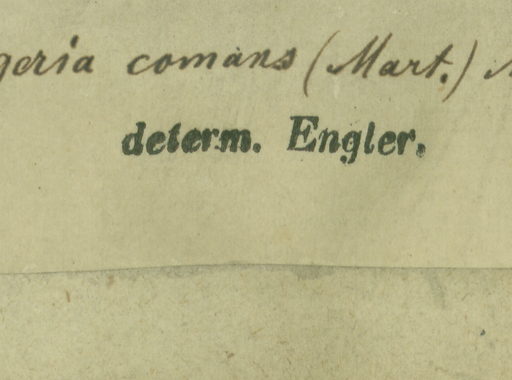 geria comans (Mart.)
determ. Engler.